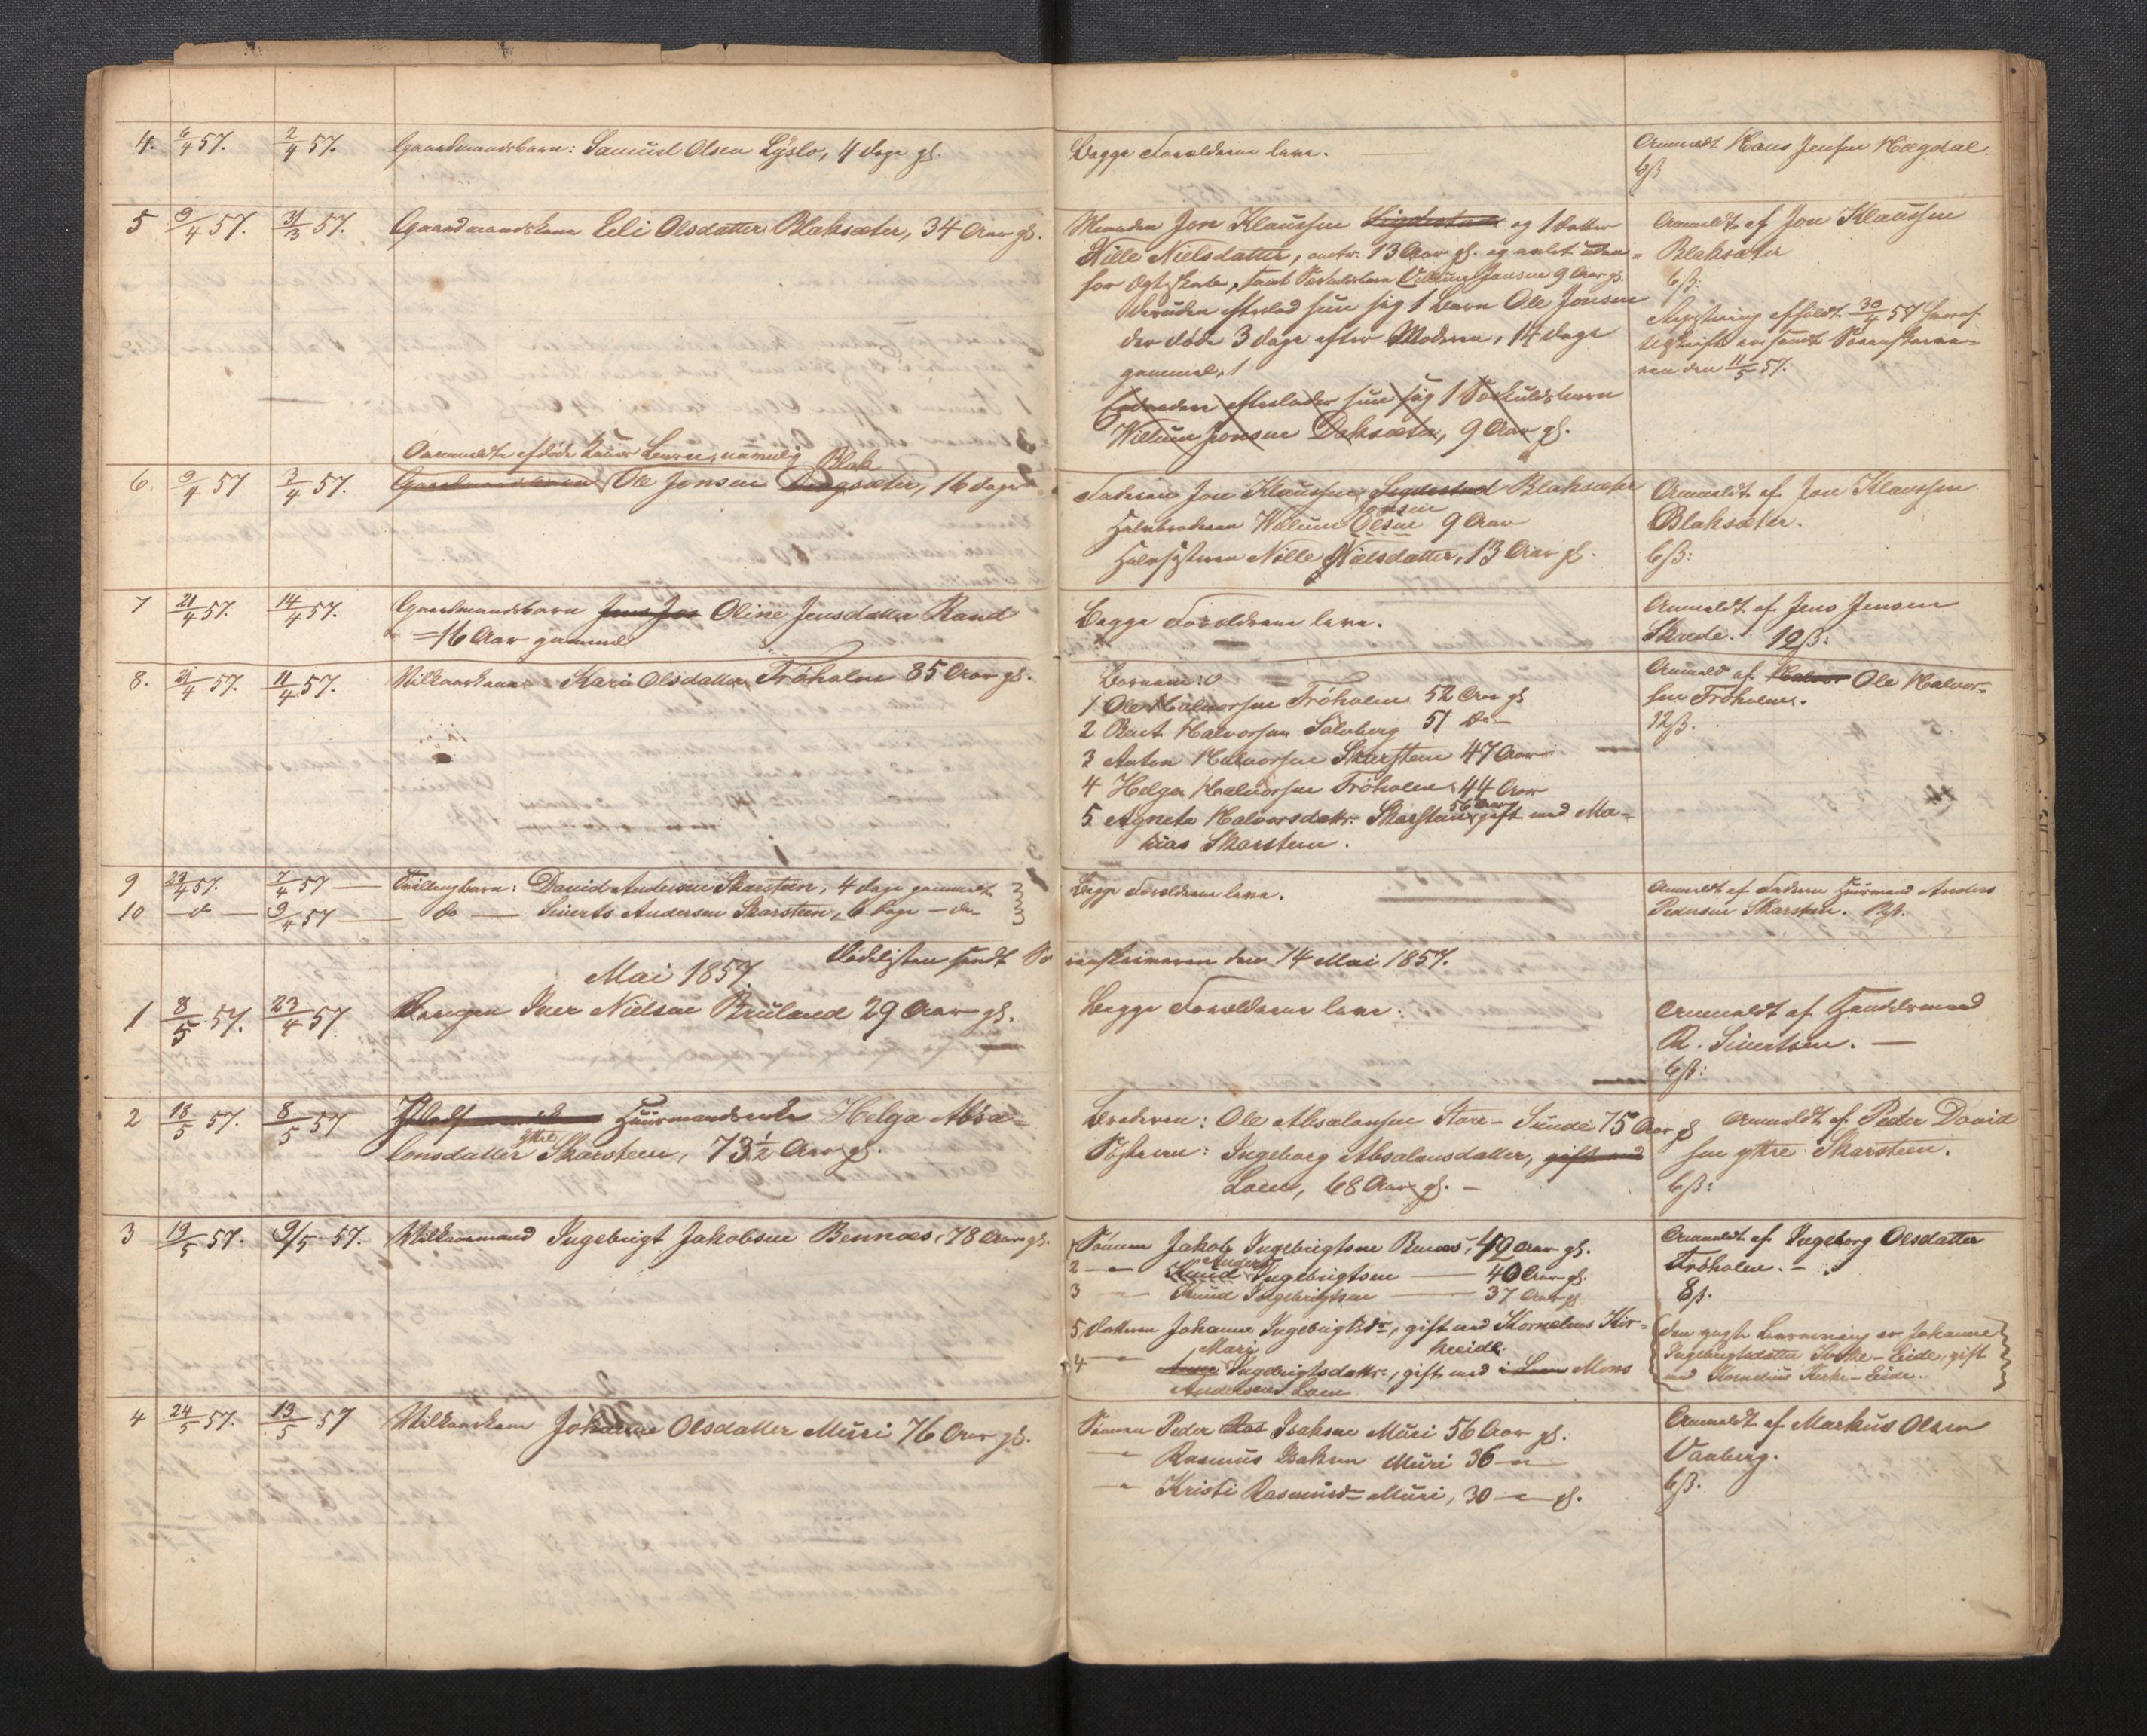 4. 6/4 57. 2/4 57. Gaardmandsbarn: Samuel Olsen Lyslo, 4 dage gl.
Begge Forældrene leve.
Anmeldt Hans Jensen Hægdal.
6ß
5 9/4 57. 31/3 57. Gaardmandskone Eli Olsdatter Blaksæter, 34 Aar gl.
Manden Jon Klaussen og 1 datter
Nille Nielsdatter, 13 Aar gl. og avlet uden-
for Ægteskab, samt Forskudsbarn Villum Jonsen 9 Aar gl.
Desuden efterlod hun sig 1 Barn Ole Jonsen
der døde 3 dage efter Moderen, 14 dage
gammel.
Endvidere efterlader hun sig 1 Forskuldsbarn
Willum Jonsen Daksæter, 9 Aar gl.
Anmeldt af Jon Klaussen
Blaksæter
6ß:
Registrering afholdt 30/4 57 hvoraf
Udskrift er sendt Sorenskrive-
ren den 11/5 57.
Anmeldte afdøde Kones Barn, nemlig
Blak
6. 9/4 57 3/4 57. Gaardmandsbarn Ole Jonsen Dragsæter, 16 dage
Faderen Jon Klaussen Sigdestad Blaksæter
Jonsen
Halvbroderen Willum Olsen 9 Aar
Halvsøsteren Nille Nielsdatter, 13 Aar gl.
Anmeldt af Jon Klaussen
Blaksæter.
6ß:
7 21/4 57. 14/4 57. Gaardmandsbarn Jens Jos Oline Jensdatter Rand
= 16 Aar gammel
Begge Forældrene leve.
Anmeldt af Jens Jensen
Skrede. 12ß:
8. 21/4 57. 11/4 57. Vilkaarskone Kari Olsdatter Frøholm 85 Aar gl.
Børnene:
1 Ole Halvorsen Frøholm 52 Aar gl
2 Knut Halvorsen Solvberg 51 do
3 Anton Halvorsen Skarsteen 47 Aar
4 Helge Halvorsen Frøholm 44 Aar
56 Aar
5 Agnete Halvorsdattr. Skarsteen, gift med Ma-
kias Skarsteen.
Anmeldt af Halvor Ole Halvor-
sen Frøholm.
12ß.
9 23/4 57. 7/4 57 Tvillingbarn: David Andersen Skarsteen, 4 dage gammelt
10 do 9/4 57 do Siverts Andersen Skarsteen, 6 dage do
Begge Forældrene leve.
Anmeldt af Faderen Huusmand Anders
Pedersen Skarsteen. 12ß.
Dødelisten sendt So renskriveren den 14 Mai 1857.
Mai 1857.
1 8/5 57. 23/4 57 Drengen Iver Nielsen Bruland 29 Aar gl.
Begge Forældrene leve.
Anmeldt af Handelsmand
R. Sivertsen.
6ß:
2 18/5 57. 8/5 57 Huusmandsenke Helga Absa-
yttre
lonsdatter Skarsteen, 73½ Aar gl.
Broderen: Ole Absalonsen Store-Sunde 75 Aar gl
Søsteren: Ingeborg Absalonsdatter, gift med
Loen, 68 Aar gl.
Anmeldt af Peder David
sen yttre Skarsteen.
6ß:
3 19/5 57. 9/5 57. Vilkaarmand Ingebrigt Jakobsen Bennæs, 78 Aar gl.
Sønnen Jakob Ingebrigtsen Bennæs, 42 Aar gl.
Anders
2 Knud Ingebrigtsen 40 Aar gl.
3 Knud Ingebrigtsen 37 Aar gl
5 datteren Johanne Ingebrigtsdr, gift med Kornelius Kir-
Mari keeide.
4 Anne Ingebrigtsdattr., gift med i Loen Mons
Andersen Loen
Anmeldt af Ingeborg Olsdatter
Frøholm.
8ß.
den yngste er Johanne
Ingebrigtsdatter Kirke-Eide, gift
med Kornelius Kirke-Eide.
4 24/5 57. 13/5 57 Vilkaarskone Johanne Olsdatter Muri 76 Aar gl.
Sønnen Peder Ras Isaksen Muri 56 Aar gl.
Rasmus Isaksen Muri 36
Kristi Rasmusdr Muri, 30 gl.
Anmeldt af Markus Olsen
Vanberg.
6ß.